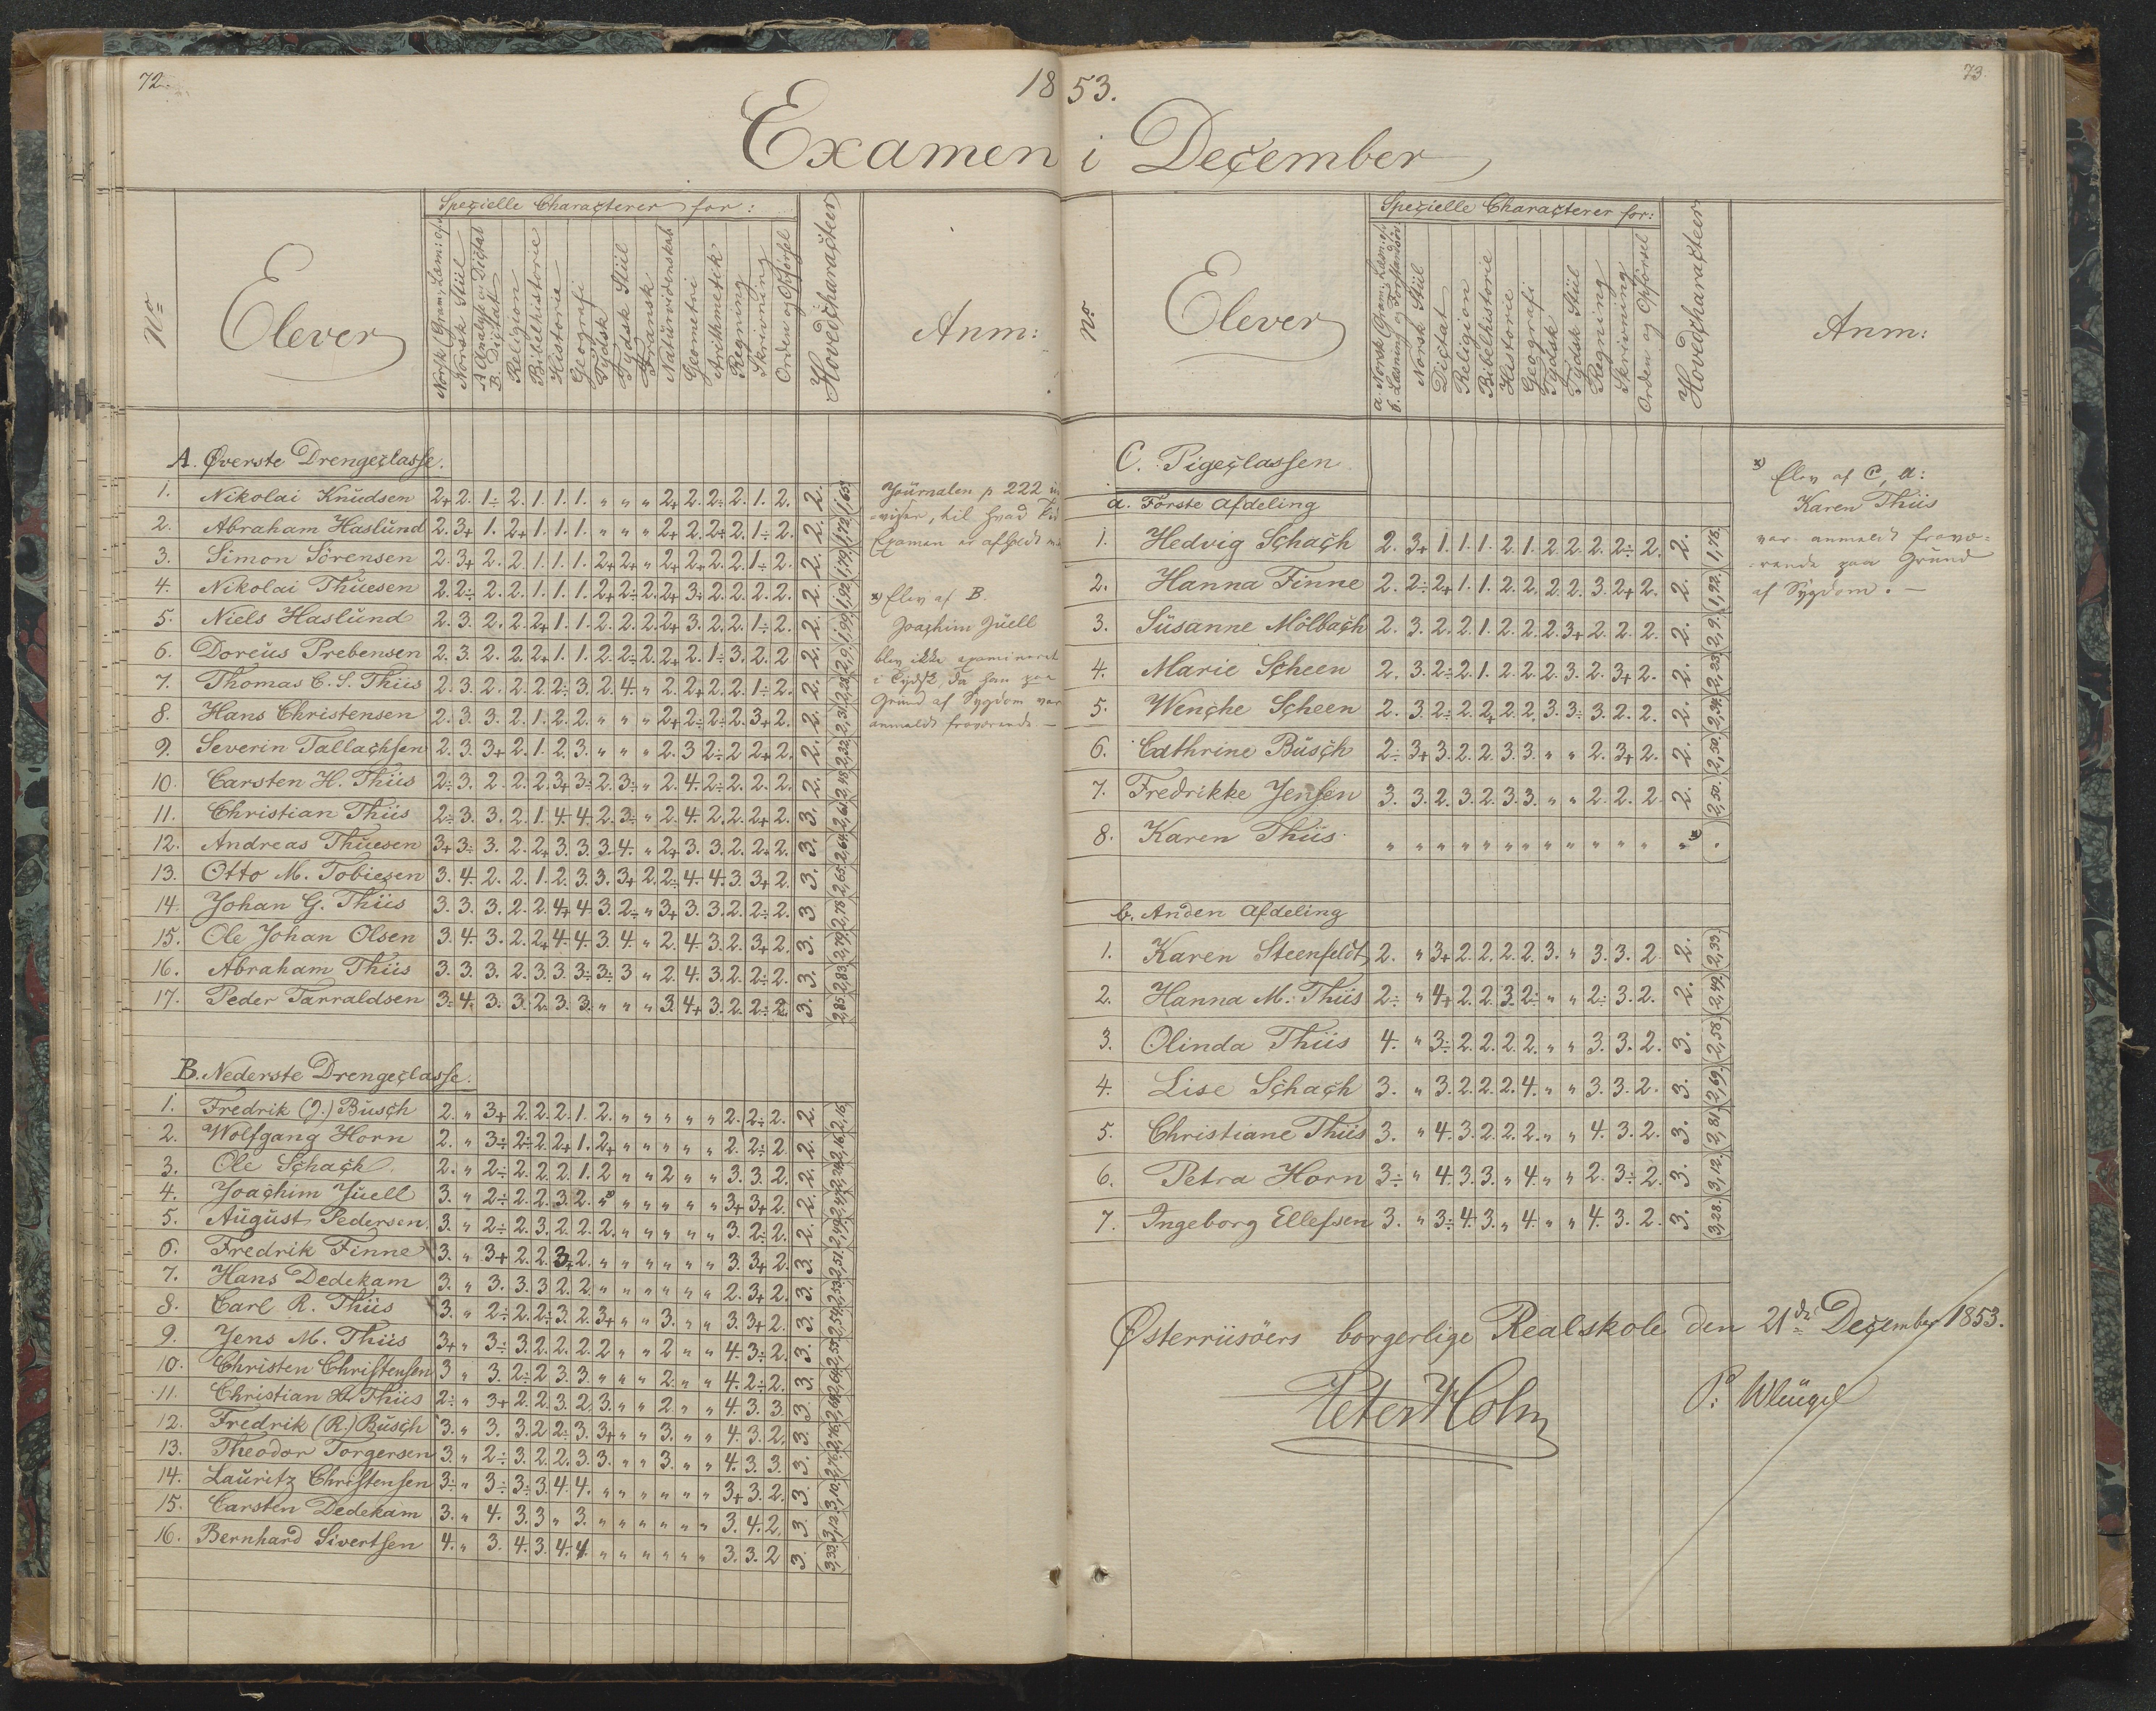 72.
1853.
73.
Examen i December
No
Elever
Specielle Characterer for:
Norsk Stiil
B. Dictat
Religion
Bibelhistorie
Historie
Geografi
Tydsk
Tydsk Stiil
Fransk
Naturvidenskab
Geometri
Arithmetik
Regning
Skrivning
Orden og Opførsel
Hovedcharacteer
Anm:
A. Øverste Drengeclasse.
1. Nikolai Knudsen 2+ 2. 1÷ 2. 1. 1. 1. " " " 2+ 2. 2÷ 2. 1. 2. 2. (1,65)
2. Abraham Haslund 2. 3+ 1. 2+ 1. 1. 1. " " " 2+ 2. 2+ 2. 1÷ 2. 2. (1,72)
3. Simon Sörensen 2. 3+ 2. 2. 1. 1. 1. 2+ 2+ " 2+ 2+ 2. 2. 1÷ 2. 2. (1,79)
4. Nikolai Thuesen 2. 2÷ 2. 2. 1. 1. 1. 2+ 2÷ 2. 2+ 3÷ 2. 2. 2. 2. 2. (1,92)
5. Niels Haslund 2. 3. 2. 2. 2+ 1. 1. 2. 2. 2. 2+ 3. 2. 2. 1÷ 2. 2. (1,99)
6. Doreus Prebensen 2. 3. 2. 2. 2+ 1. 1. 2. 2÷ 2. 2+ 2. 1÷ 3. 2. 2 2. (2,9)
7. Thomas C. S. Thiis 2. 3. 2. 2. 2. 2÷ 3. 2. 4. " 2. 2+ 2. 2. 1÷ 2. 2. (2,23)
8. Hans Christensen 2. 3. 3. 2. 1. 2. 2. " " " 2+ 2÷ 2÷ 2. 3+ 2. 2. (2,31)
9. Severin Tallachsen 2. 3. 3+ 2. 1. 2. 3. " " " 2. 3 2÷ 2 2+ 2. 2. (2,32)
10. Carsten H. Thiis 2÷ 3. 2. 2. 2. 3+ 3÷ 2. 3÷ " 2. 4. 2÷ 2. 2. 2. 2. (2,48)
11. Christian Thiis 2÷ 3. 3. 2. 1. 4. 4. 2. 3÷ " 2. 4. 2. 2. 2+ 2. 3. (2,63)
12. Andreas Thuesen 3+ 3÷ 3. 2. 2+ 3. 3. 3. 4. " 2+ 3. 3. 2. 2+ 2. 3. (2,64)
13. Otto M. Tobiesen 3. 4. 2. 2. 1. 2. 3. 3. 3+ 2. 2÷ 4. 4. 3. 3+ 2. 3. (2,65)
14. Johan G. Thiis 3. 3. 3. 2. 2. 4+ 4. 3. 2÷ " 3+ 3. 3. 2. 2÷ 2. 3 (2,78)
15. Ole Johan Olsen 3. 4. 3. 2. 2+ 4. 4. 3. 4. " 2. 4. 3. 2. 3+ 2. 3. (2,79)
16. Abraham Thiis 3. 3. 3. 2. 3. 3. 3÷ 3÷ 3 " 2. 4. 3. 2. 2÷ 2. 3. (2,83)
17. Peder Tarraldsen 3÷ 4. 3. 3. 2. 3. 3. " " " 3. 4+ 3. 2. 2÷ 2. 3. (2,85)
B. Nederste Drengeclasse.
1. Fredrik (J.) Busch 2. " 3+ 2. 2. 2. 1. 2. " " " " " 2. 2÷ 2. 2. (2,16)
2. Wolfgang Horn 2. " 3÷ 2÷ 2. 2+ 1. 2+ " " " " " 2. 2÷ 2. 2.
3. Ole Schach 2. " 2÷ 2. 2. 2. 1. 2 " " 2 " " 3. 3. 2. 2.
4. Joachim Juell 3. " 2÷ 2. 2. 3. 2. "x) " " " " " 3+ 3+ 2. 2.
5. August Pedersen 3. " 2÷ 2. 3. 2. 2. 2. " " " " " 3. 2÷ 2. 2.
6. Fredrik Finne 3. " 3+ 2. 2. 3+ 2. " " " " " " 3. 3+ 2. 3.
7. Hans Dedekam 3. " 3. 3. 3 2. 2. " " " " " " 2. 3+ 2. 3.
8. Carl R. Thiis 3. " 2÷ 2. 2÷ 3. 2. 3+ " " 3. " " 3. 3+ 2. 3.
9. Jens M. Thiis 3+ " 3÷ 3. 2. 2. 2. 2 " " 2 " " 4. 3÷ 2. 3.
10. Christen Christensen 3 " 3. 2÷ 2 3. 3. " " " 2. " " 4. 2÷ 2. 3.
11. Christian A. Thiis 2÷ " 3+ 2. 2. 3. 2. 3. " " 2. " " 4. 3. 3. 3.
12. Fredrik (R.) Busch 3. " 3. 3. 2. 2÷ 3. 3+ " " 3. " " 4. 3. 2. 3.
13. Theodor Torgersen 3. " 2÷ 3. 2. 2. 3. 3. " " 3. " " 4. 3. 3. 3.
14. Lauritz Christensen 3÷ " 3÷ 3÷ 3. 4. 4. " " " " " " 3+ 3. 2. 3. (3,10)
15. Carsten Dedekam 3. " 4. 3. 3. " 3. " " " " " " 3. 4. 2. 3.
16. Bernhard Sivertsen 4. " 3. 4. 3. 4. 4. " " " " " " 3. 3. 2 3. (3,33)
Journalen p 222
viser, til hvad
Examen er afholdt
x) Elev af B.
Joachim Juell
blev ikke examineret
i Tydsk, da han paa
Grund af Sygdom var
anmeldt fraværende. —
No
Elever
Specielle Characterer for:
a. Norsk Gram: Læsn: of
b. Læsning og Forstandsöv
Norsk Stiil
Dictat
Religion
Bibelhistorie
Historie
Geografi
Tydsk
Tydsk Stiil
Regning
Skrivning
Orden og Opførsel
Hovedcharacteer
Anm:
C. Pigeclassen.
a. Förste Afdeling
1. Hedvig Schach 2. 3+ 1. 1. 1. 2. 1. 2. 2. 2. 2÷ 2. 2. (1,78)
2. Hanna Finne 2. 2÷ 2+ 1. 1. 2. 2. 2. 2. 3. 2+ 2. 2. (1,92)
3. Susanne Mölbach 2. 3. 2. 2. 1. 2. 2. 2. 3+ 2. 2. 2. 2. (2,9)
4. Marie Scheen 2. 3. 2÷ 2. 1. 2. 2. 2. 3. 2. 3+ 2. 2. (2,23)
5. Wenche Scheen 2. 3. 2÷ 2. 2+ 2. 2. 3. 3÷ 3. 2. 2. 2. (2,34)
6. Cathrine Busch 2÷ 3+ 3. 2. 2. 3. 3. " " 2. 3+ 2. 2. (2,50)
7. Fredrikke Jensen 3. 3. 2. 3. 2. 3. 3. " " 2. 2. 2. 2. (2,50)
8. Karen Thiis " " " " " " " " " " " " "x)
b. Anden Afdeling
1. Karen Steenfeldt 2. " 3+ 2. 2. 2. 2. 3. " 3. 3. 2 2. (2,33)
2. Hanna M. Thiis 2÷ " 4+ 2. 2. 3. 2÷ " " 2÷ 3. 2. 2. (2,49)
3. Olinda Thiis 4. " 3÷ 2. 2. 2. 2. " " 3. 3. 2. 3. (2,58)
4. Lise Schach 3. " 3. 2. 2. 2. 4. " " 3. 3. 2. 3. (2,69)
5. Christiane Thiis 3. " 4. 3. 2. 2. 2. " " 4. 3. 2. 3. (2,81)
6. Petra Horn 3÷ " 4. 3. 3. " 4. " " 2. 3÷ 2. 3. (3,12)
7. Ingeborg Ellefsen 3. " 3÷ 4. 3. " 4. " " 4. 3. 2. 3. (3,28)
x) Elev af C, a:
Karen Thiis
var anmeldt fravæ-
rende paa Grund
af Sygdom. —
Østerriisöers borgerlige Realskole den 21de December 1853.
Peter Holm
P: Wleugel